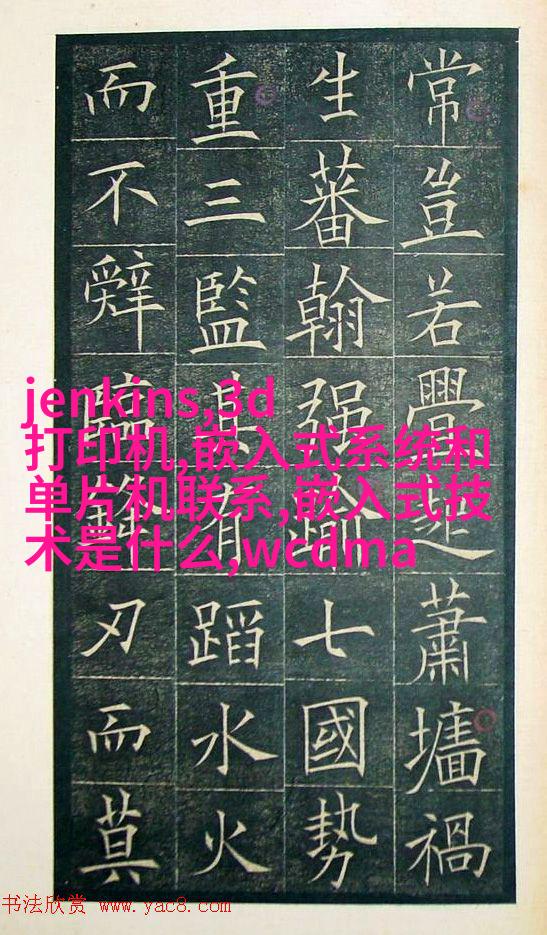 常豈若舋起蕭墻禍
生蕃翰强踰七國勢
重三監其有蹈水火
而不辤刃而莫
jenkins,3d
打印机,嵌入式系统和
单片机联系,嵌入式技
术是什么,wcdma
书法欣赏 www.yac8.com